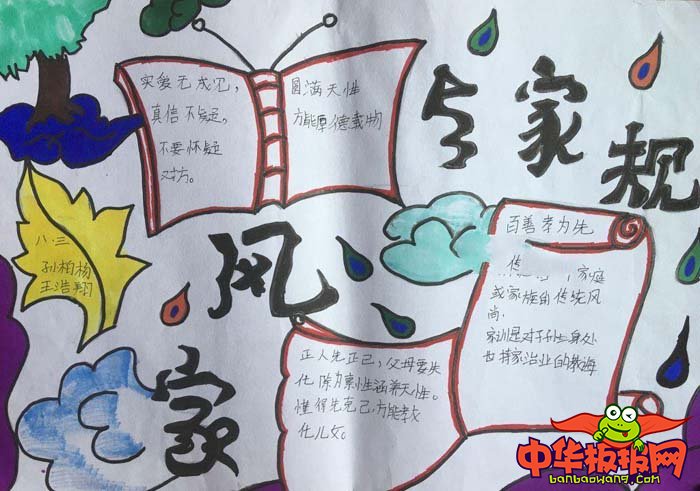 家风与家规
实爱无成见,
真信不疑,
不要怀疑
对方。
圆满天性
方能厚德载物
八.三
孙柏杨
王浩翔
百善孝为先
传
家庭
或家族的传统风
尚.
家训是对子孙立身处
世持家治业的教诲
正人先正己,父母要先
化除禀性涵养天性。
懂得先克己,方能教
化儿女。
中华板报网
banbaowang.com